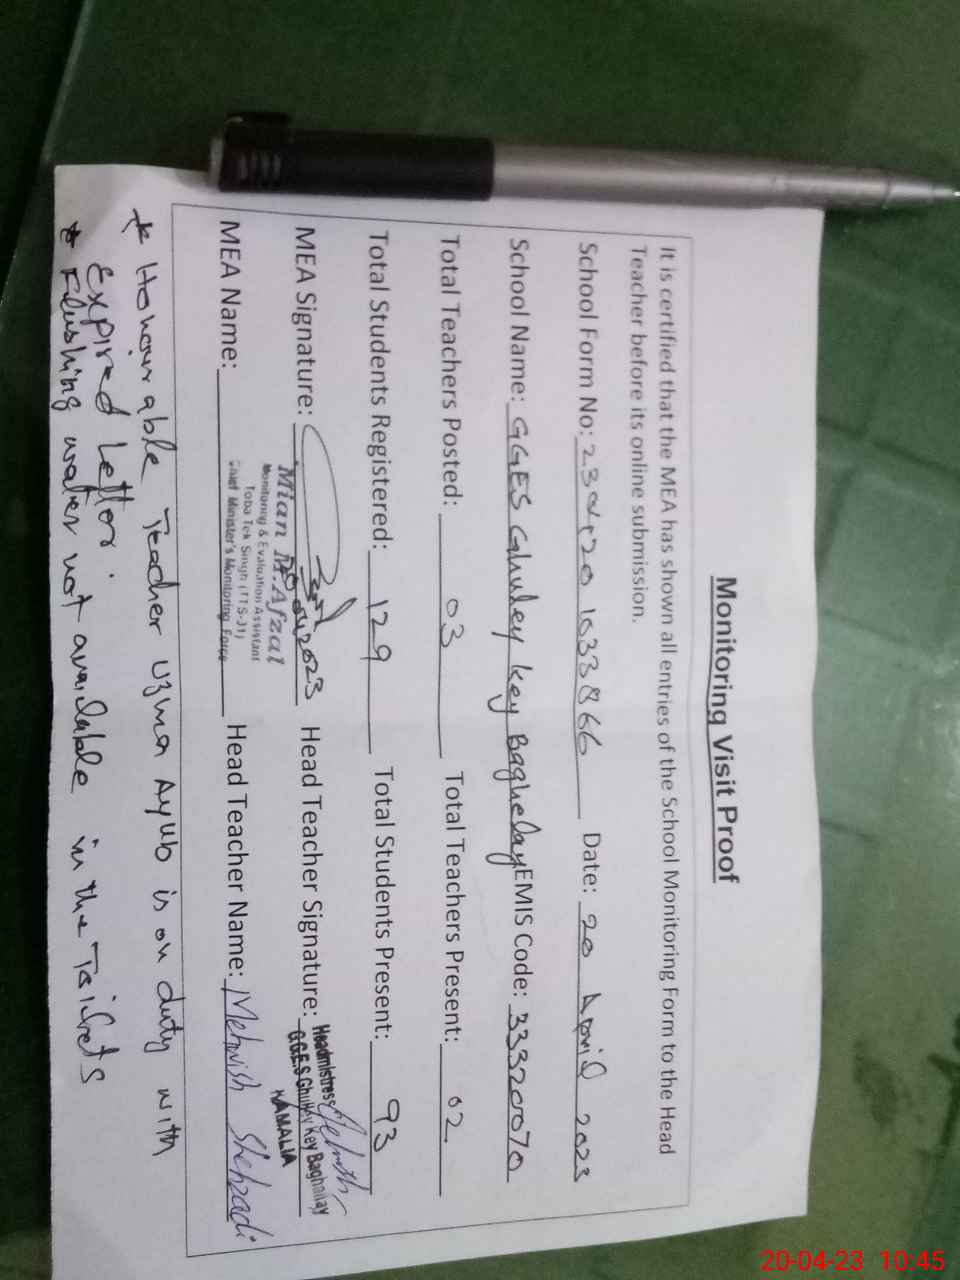 Monitoring Visit Proof
It is certified that the MEA has shown all entries of the School Monitoring Form to the Head
Teacher before its online submission.
School Form No: 230420 1033866 Date: 20 April 2023
School Name: GGES Ghuley Key Baghelay EMIS Code: 33320070
Total Teachers Posted: 03 Total Teachers Present: 02
Total Students Registered: 129 Total Students Present: 93
MEA Signature: 20 04 2023 Head Teacher Signature:
Headmistress
G.G.E.S Ghulley Key Baghallay
KAMALIA
Mian M. Afzal
Monitoring & Evaluation Assistant
Toba Tek Singh (TTS-31)
Chief Minister's Monitoring Force
MEA Name: Head Teacher Name: Mehwish Shehzadi
* Honourable Teacher Uzma Ayub is on duty with
Expired Lettor.
* Flushing water not available in the Toilets
20-04-23 10:45